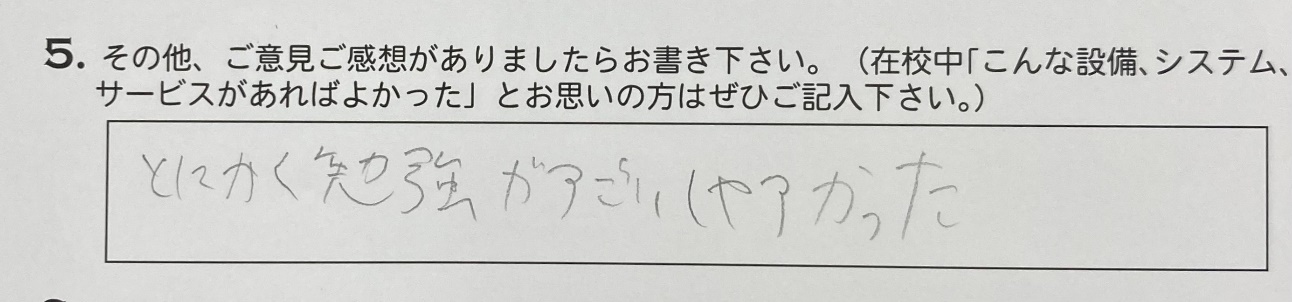 5. その他、ご意見ご感想がありましたらお書き下さい。（在校中「こんな設備、システム、
サービスがあればよかった」とお思いの方はぜひご記入下さい。）
とにかく勉強がすごいしやすかった